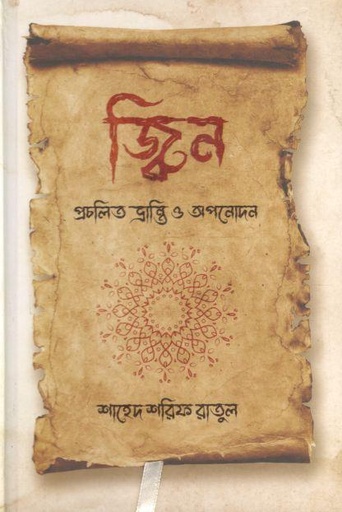 জ্বিন
প্রচলিত ভ্রান্তি ও অপনোদন
শাহেদ শরিফ রাতুল